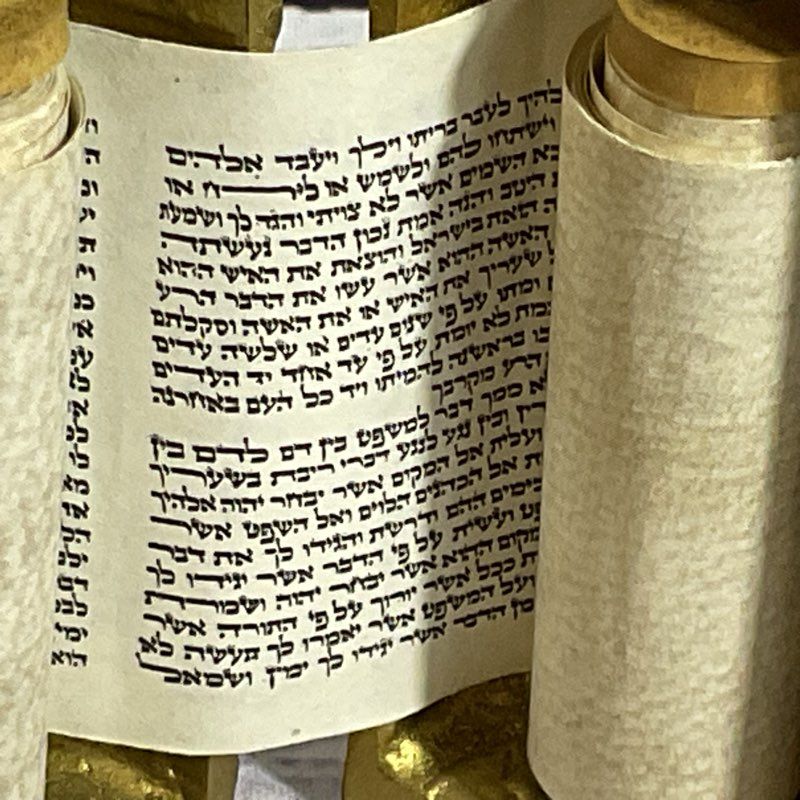 לעבר בריתו וילך ויעבד אלהים
וישתחו להם ולשמש או לירח או
השמים אשר לא צויתי והגד לך ושמעת
היטב והנה אמת נכון הדבר נעשתה
הזאת בישראל והוצאת את האיש ההוא
האשה ההוא אשר עשו את הדבר הרע
שעריך את האיש או את האשה וסקלתם
ומתו על פי שנים עדים או שלשה עדים
לא יומת על פי עד אחד יד העדים
בראשנה להמיתו ויד כל העם באחרנה
הרע מקרבך
ממך דבר למשפט בין דם לדם בין
ובין נגע לנגע דברי ריבת בשעריך
ועלית אל המקום אשר יבחר יהוה אלהיך
אל הכהנים הלוים ואל השפט אשר
בימים ההם ודרשת והגידו לך את דבר
ועשית על פי הדבר אשר יגידו לך
המקום ההוא אשר יבחר יהוה ושמרת
ככל אשר יורוך על פי התורה אשר
ועל המשפט אשר יאמרו לך תעשה לא
מן הדבר אשר יגידו לך ימין ושמאל